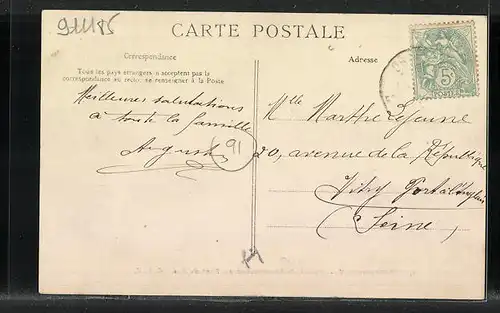 911185
CARTE POSTALE
Correspondance
Adresse
Tous les pays étrangers n'acceptent pas la
correspondance au recto, se renseigner à la Poste
5c
Meilleures salutations
à toute la famille
August
91
Mlle Marthe Lejeune
20, avenue de la République
Vitry Port à l'Anglais
(Seine)